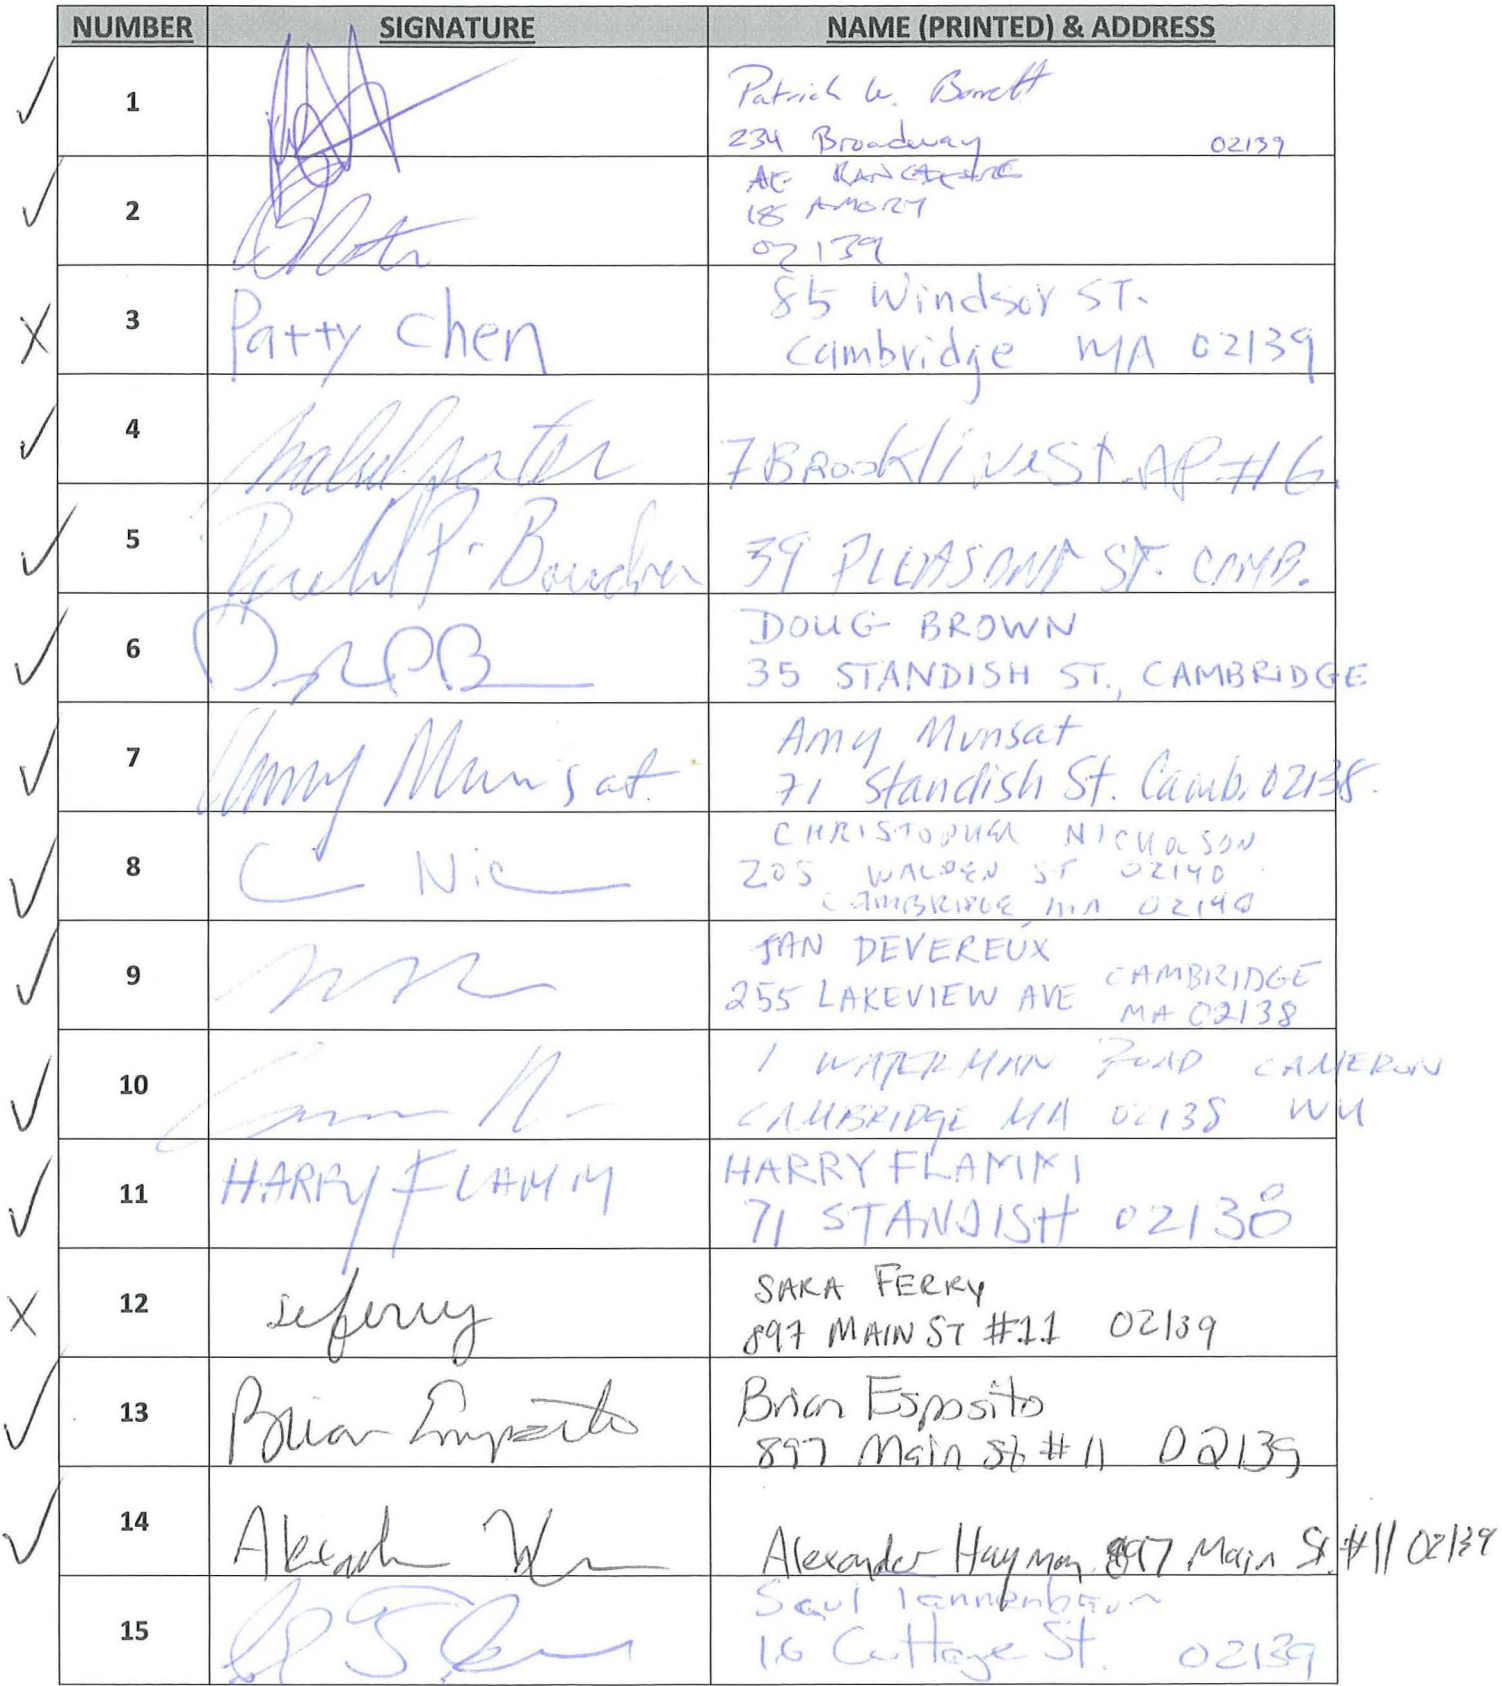 NUMBER SIGNATURE NAME (PRINTED) & ADDRESS
1 Patrick W. Barrett
234 Broadway 02139
2
18 AMORY
02139
3 Patty Chen 85 Windsor ST.
Cambridge MA 02139
4 7 Brookline St. AP #6
5 P. Boudreau 39 PLEASANT ST. CAMB.
6 DOUG BROWN
35 STANDISH ST., CAMBRIDGE
7 Amy Munsat Amy Munsat
71 Standish St. Camb. 02138.
8 C Nic CHRISTOPHER NICHOLSON
205 WALDEN ST 02140
CAMBRIDGE MA 02140
9 JAN DEVEREUX
255 LAKEVIEW AVE CAMBRIDGE
MA 02138
10 1 WATERMAN ROAD CAMERON
CAMBRIDGE MA 02138 WU
11 HARRY FLAMM HARRY FLAMM
71 STANDISH 02138
12 seferry SARA FERRY
897 MAIN ST #11 02139
13 Brian Esposito Brian Esposito
897 Main St #11 02139
14 Alexander Alexander Hayman 897 Main St. #11 02139
15 Saul Tannenbaum
16 Cottage St. 02139